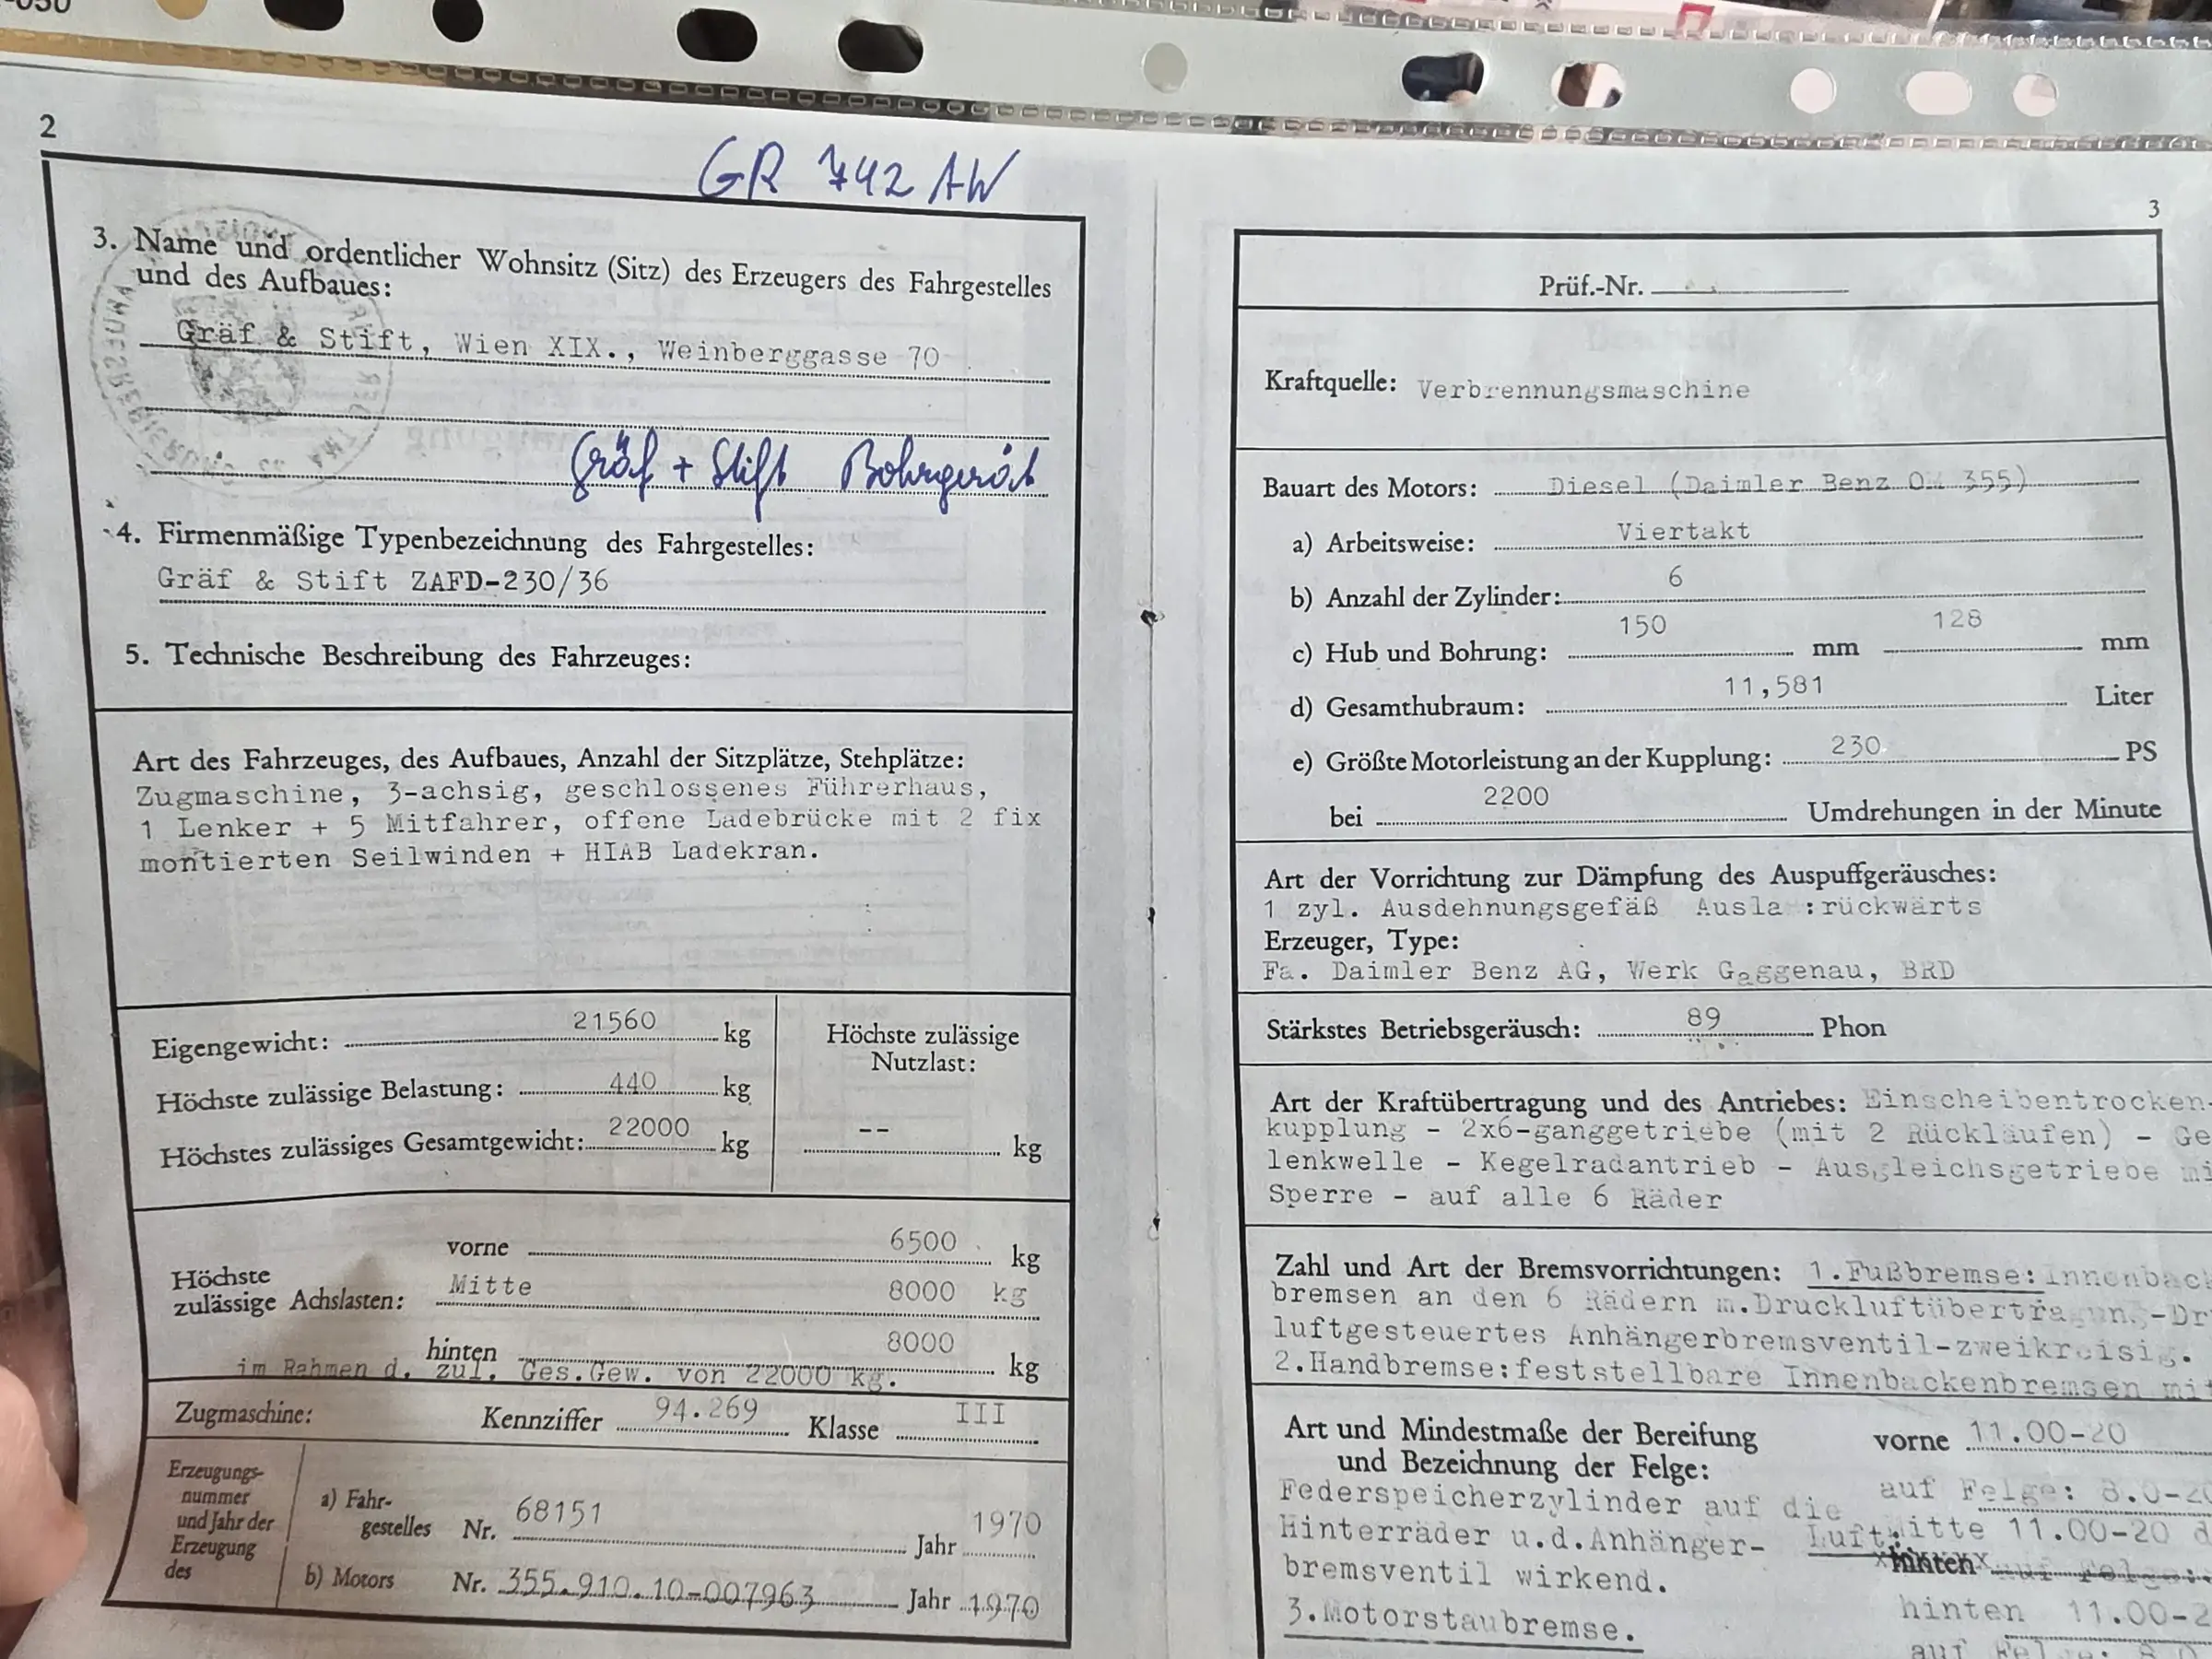 2
GR 742 AW
3. Name und ordentlicher Wohnsitz (Sitz) des Erzeugers des Fahrgestelles
und des Aufbaues:
Gräf & Stift, Wien XIX., Weinberggasse 70
Gräf + Stift Bohrgerät
4. Firmenmäßige Typenbezeichnung des Fahrgestelles:
Gräf & Stift ZAFD-230/36
5. Technische Beschreibung des Fahrzeuges:
Art des Fahrzeuges, des Aufbaues, Anzahl der Sitzplätze, Stehplätze:
Zugmaschine, 3-achsig, geschlossenes Führerhaus,
1 Lenker + 5 Mitfahrer, offene Ladebrücke mit 2 fix
montierten Seilwinden + HIAB Ladekran.
Eigengewicht: 21560 kg
Höchste zulässige Belastung: 440 kg
Höchstes zulässiges Gesamtgewicht: 22000 kg
Höchste zulässige
Nutzlast:
-- kg
Höchste
zulässige Achslasten:
vorne 6500 kg
Mitte 8000 kg
hinten 8000 kg
im Rahmen d. zul. Ges.Gew. von 22000 kg.
Zugmaschine: Kennziffer 94.269 Klasse III
Erzeugungs-
nummer
und Jahr der
Erzeugung
des
a) Fahr-
gestelles Nr. 68151 Jahr 1970
b) Motors Nr. 355.910.10-007963 Jahr 1970
3
Prüf.-Nr.
Kraftquelle: Verbrennungsmaschine
Bauart des Motors: Diesel (Daimler Benz OM 355)
a) Arbeitsweise: Viertakt
b) Anzahl der Zylinder: 6
c) Hub und Bohrung: 150 mm 128 mm
d) Gesamthubraum: 11,581 Liter
e) Größte Motorleistung an der Kupplung: 230 PS
bei 2200 Umdrehungen in der Minute
Art der Vorrichtung zur Dämpfung des Auspuffgeräusches:
1 zyl. Ausdehnungsgefäß Ausla :rückwärts
Erzeuger, Type:
Fa. Daimler Benz AG, Werk Gaggenau, BRD
Stärkstes Betriebsgeräusch: 89 Phon
Art der Kraftübertragung und des Antriebes: Einscheibentrocken-
kupplung - 2x6-ganggetriebe (mit 2 Rückläufen) - Ge
lenkwelle - Kegelradantrieb - Ausgleichsgetriebe mi
Sperre - auf alle 6 Räder
Zahl und Art der Bremsvorrichtungen: 1.Fußbremse: Innenback
bremsen an den 6 Rädern m.Druckluftübertragung-Dr
luftgesteuertes Anhängerbremsventil-zweikreisig.
2.Handbremse:feststellbare Innenbackenbremsen mit
Art und Mindestmaße der Bereifung
und Bezeichnung der Felge:
vorne 11.00-20
auf Felge: 8.0-20
Federspeicherzylinder auf die
Hinterräder u.d.Anhänger-
Luft.
bremsventil wirkend.
3.Motorstaubremse.
Mitte 11.00-20
hinten auf Felge:
hinten 11.00-2
auf Felge: 8.0